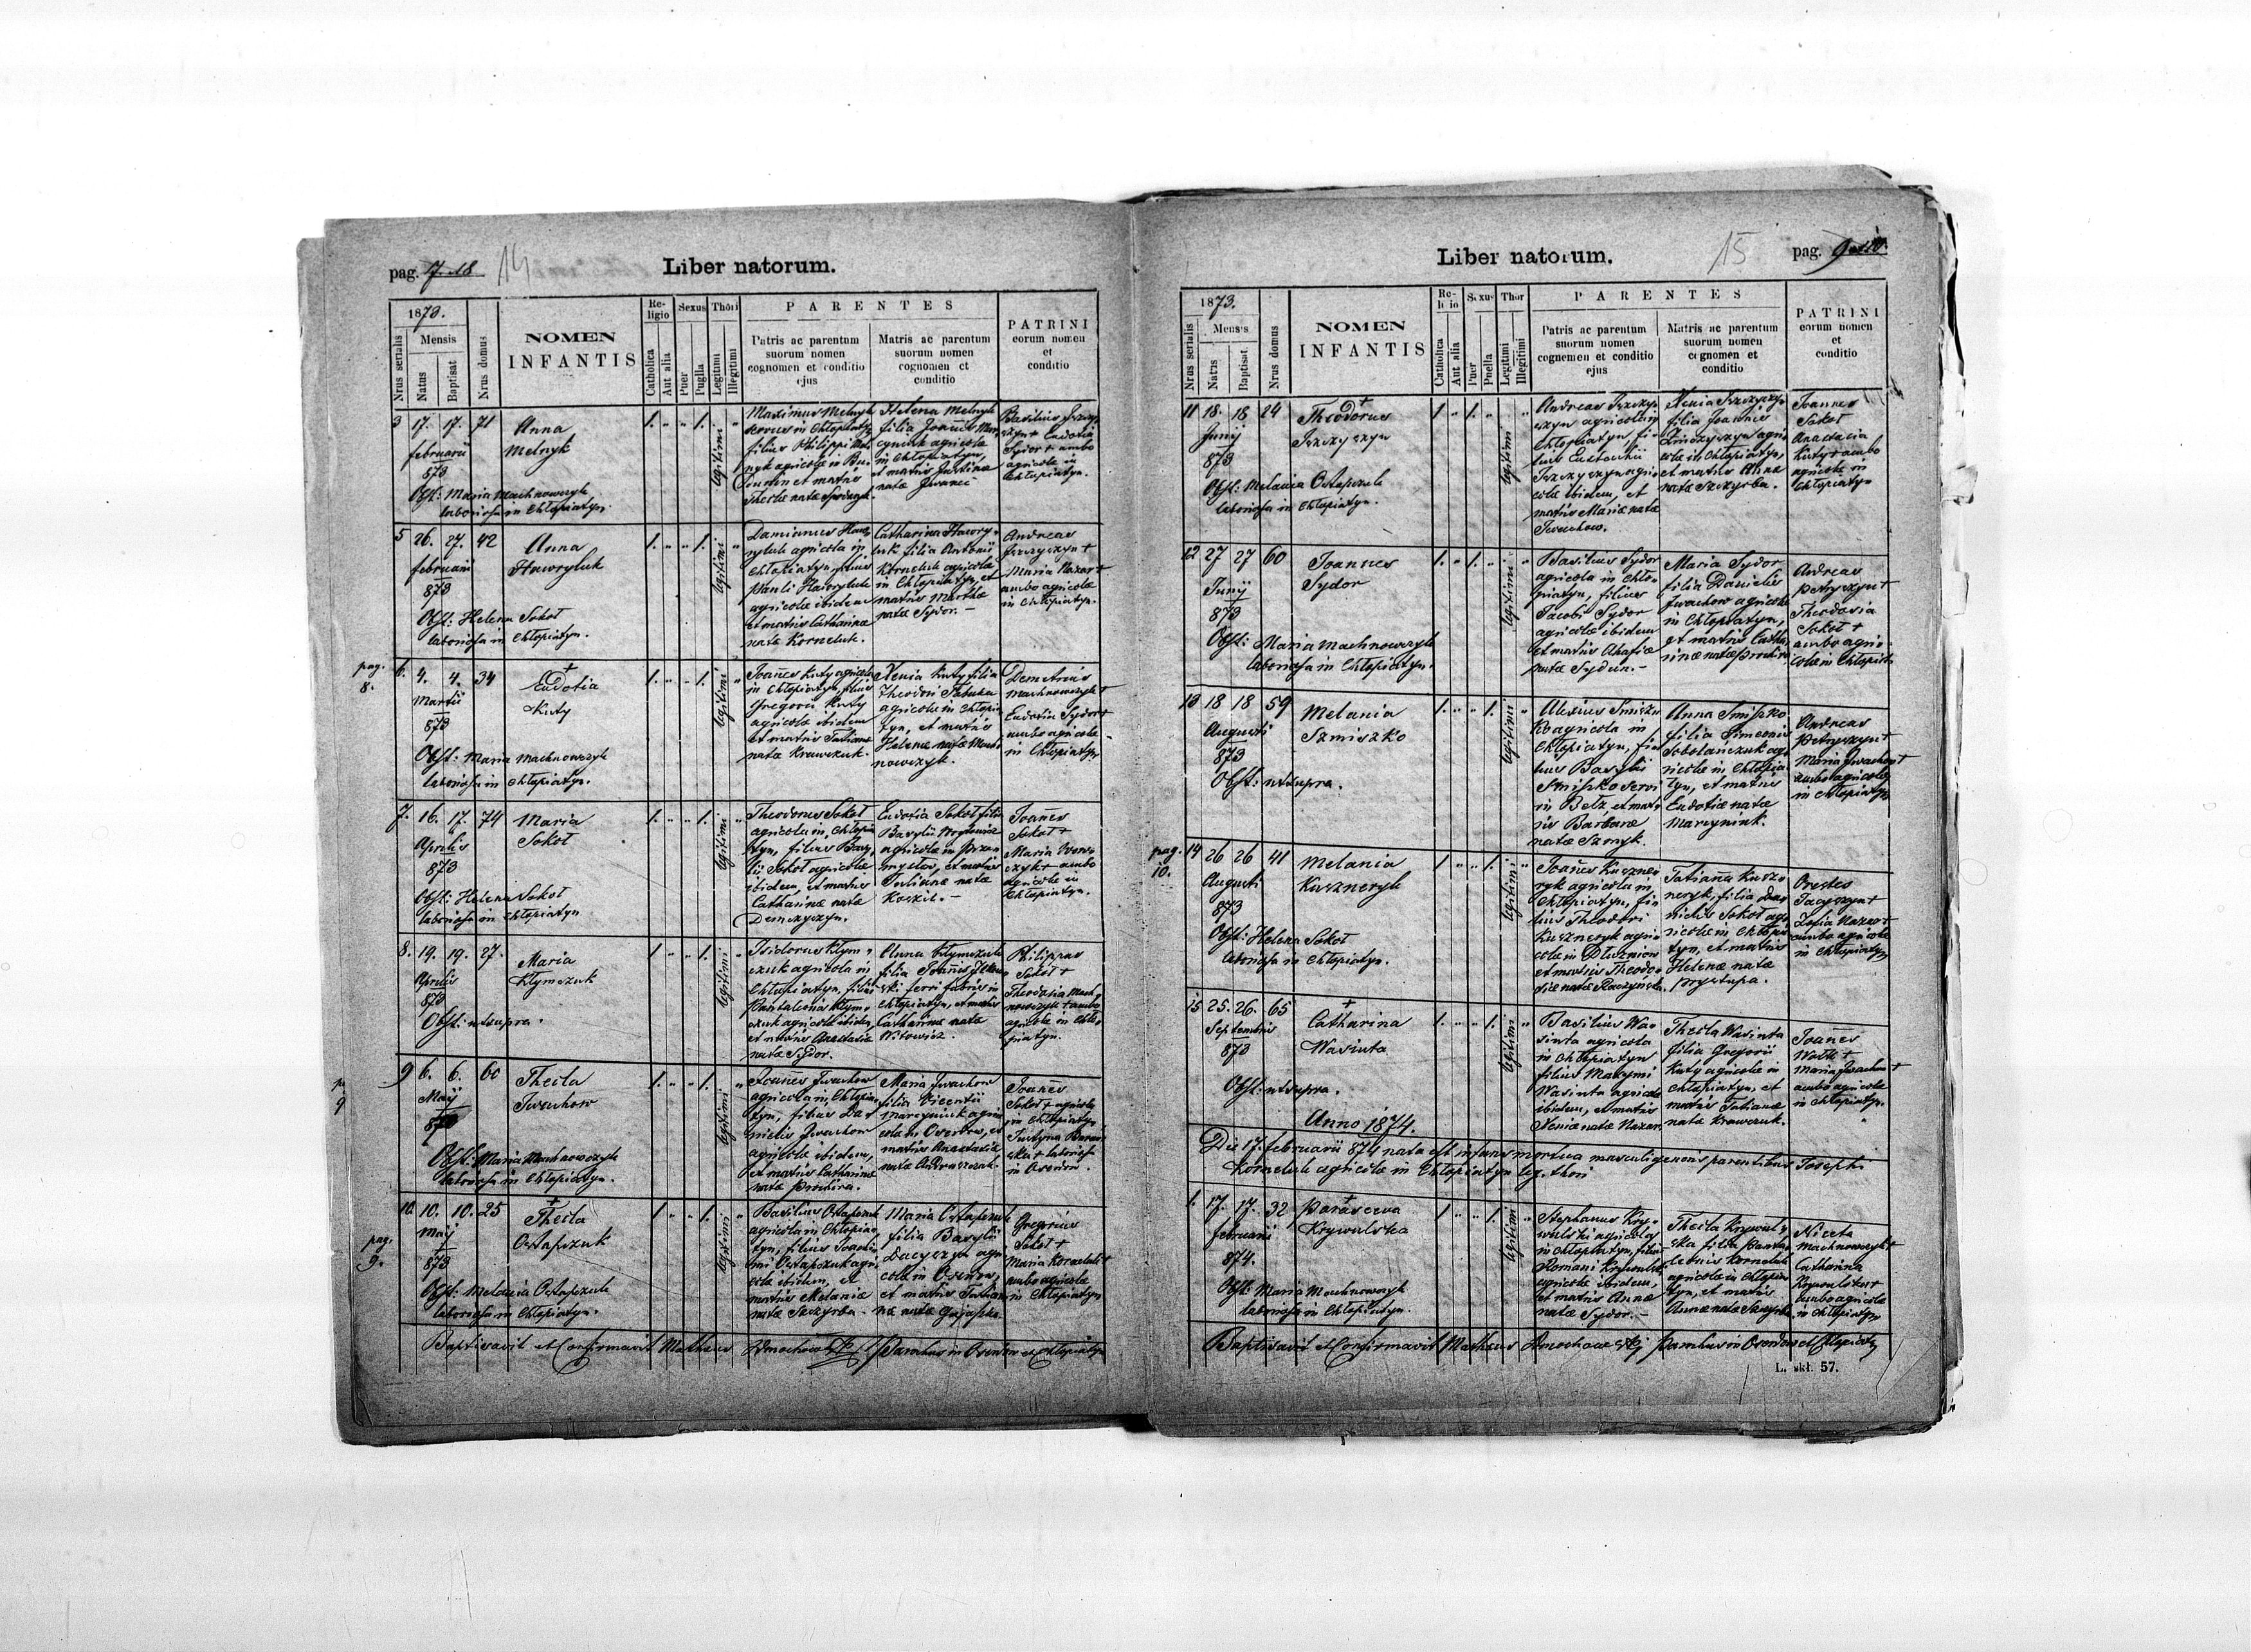 pag. 7. 18 14 Liber natorum.
1873.
Nrus serialis
Mensis
Natus
Baptisat
Nrus domus
NOMEN
INFANTIS
Religio
Catholica
Aut alia
Sexus
Puer
Puella
Thori
Legitimi
Illegitimi
PARENTES
Patris ac parentum
suorum nomen
cognomen et conditio
ejus
Matris ac parentum
suorum nomen
cognomen et
conditio
PATRINI
eorum nomen
et
conditio
3 17. 17. 71 Anna
februarii Melnyk
873
Obst: Maria Machnowczyk
laboriosa in Chłopiatyn.
1. " " 1. legitimi "
Maximus Melnyk
servus in Chłopiatyn
filius Philippi Mel
nyk agricolæ in
et matris
Theclæ natæ
Helena Melnyk
filia Joannis Mar
cyniuk agricolæ
in Chłopiatyn,
et matris Justinæ
natæ Iwanec
Basilius
Eudotia
Sydor + ambo
agricolæ in
Chłopiatyn.
5 26. 27. 42 Anna
februarii Hawryluk
873
Obst: Helena Sokoł
laboriosa in Chłopiatyn.
1. " " 1. legitimi "
Damianus Haw
ryluk agricola in
Chłopiatyn, filius
Pauli Hawryluk
agricolæ ibidem
et matris Catharinæ
natæ Korneluk.
Catharina Hawry
luk filia Antonii
Korneluk agricolæ
in Chłopiatyn, et
matris Marthæ
natæ Sydor. –
Andreas
Jszczyszyn +
Maria Nazar +
ambo agricolæ
in Chłopiatyn.
pag.
8.
6. 4. 4. 34 Eudotia
Martii Kuty
873
Obst: Maria Machnowczyk
laboriosa in Chłopiatyn.
1. " " 1. legitimi "
Joannes Kuty agricola
in Chłopiatyn, filius
Gregorii Kuty
agricolæ ibidem
et matris Tatianæ
natæ Krawczuk.
Xenia Kuty filia
Theodori
agricolæ in Chłopia
tyn, et matris
Helenæ natæ Mach
nowczyk.
Demetrius
Machnowczyk +
Eudotia Sydor +
ambo agricolæ
in Chłopiatyn
7. 16. 17. 74 Maria
Aprilis Sokoł
873
Obst: Helena Sokoł
laboriosa in Chłopiatyn
1. " " 1. legitimi "
Theodorus Sokoł
agricola in Chłopia
tyn, filius Basy
lii Sokoł agricolæ
ibidem, et matris
Catharinæ natæ
Demczyszyn.
Eudotia Sokoł filia
Basylii
agricolæ in
et matris
Julianæ natæ
Koszil. –
Joannes
Sokoł +
Maria
ambo
agricolæ in
Chłopiatyn.
8. 19. 19. 27. Maria
Aprilis Klymczuk
873
Obst: ut supra.
1 " " 1. legitimi "
Isidorus Klym
czuk agricola in
Chłopiatyn, filius
Pantaleonis Klym
czuk agricolæ ibidem,
et matris Anastasiæ
natæ Sydor.
Anna Klymczuk
filia Joannis
ferri fabris in
Chłopiatyn, et matris
Catharinæ natæ
Witowicz.
Philippus
Sokoł +
Theodosia Mach
nowczyk + ambo
agricolæ in Chło
piatyn.
p.
9
9 6. 6. 60 Thecla
Maij Iwachow
873
Obst: Maria Machnowczyk
laboriosa in Chłopiatyn.
1. " " 1. legitimi "
Joannes Iwachow
agricola in Chłopia
tyn, filius Da
nielis Iwachow
agricolæ ibidem,
et matris Catharinæ
natæ Prochira.
Maria Iwachow
filia Vicentii
Marcyniuk agri
colæ in Oserdow, et
matris Anastasiæ
natæ
Joannes
Sokoł + agricola
in Chłopiatyn
Justyna Baran
ska + laboriosa
in Oserdow.
pag.
9.
10. 10. 10. 25 Thecla
Maij Ostapczuk
873
Obst: Melania Ostapczuk
laboriosa in Chłopiatyn.
1 " " 1. legitimi "
Basilius Ostapczuk
agricola in Chłopia
tyn, filius
Ostapczuk agri
colæ ibidem, et
matris Melaniæ
natæ Szczyrba.
Maria Ostapczuk
filia Basylii
Dacyszyn agri
colæ in Oserdow,
et matris Tatia
næ natæ
Gregorius
Sokoł +
Maria Korneluk +
ambo agricolæ
in Chłopiatyn
Baptisavit et Confirmavit Matheus Dmochowski Parochus in Oserdow et Chłopiatyn
Liber natorum. 15 pag. 9 et 10.
1873.
Nrus serialis
Mensis
Natus
Baptisat
Nrus domus
NOMEN
INFANTIS
Religio
Catholica
Aut alia
Sexus
Puer
Puella
Thor
Legitimi
Illegitimi
PARENTES
Patris ac parentum
suorum nomen
cognomen et conditio
ejus
Matris ac parentum
suorum nomen
cognomen et
conditio
PATRINI
eorum nomen
et
conditio
11 18. 18 24 Theodorus
Junij Jszczyszyn
873
Obst: Melania Ostapczuk
laboriosa in Chłopiatyn.
1 " 1. " legitimi "
Andreas Jszczy
szyn agricola in
Chłopiatyn, fi
lius Eustachii
Jszczyszyn agri
colæ ibidem, et
matris Mariæ natæ
Iwachow.
Xenia Jszczyszyn
filia Joannis
agri
colæ in Chłopiatyn,
et matris Annæ
natæ Szczyrba.
Joannes
Sokoł
Anastasia
Kuty + ambo
agricolæ in
Chłopiatyn
12 27 27 60 Joannes
Junij Sydor
873
Obst: Maria Machnowczyk
laboriosa in Chłopiatyn.
1. " 1. " legitimi "
Basilius Sydor
agricola in Chło
piatyn, filius
Jacobi Sydor
agricolæ ibidem
et matris Ahafiæ
natæ Sydun. –
Maria Sydor
filia Danielis
Iwachow agricolæ
in Chłopiatyn,
et matris Catha
rinæ natæ Prochira
Andreas
Petryszyn +
Theodosia
Sokoł +
ambo agri
colæ in Chłopiat
13 18 18 59 Melania
Augusti Szmiszko
873
Obst: ut supra.
1. " " 1. legitimi "
Alexius Smiszko
agricola in
Chłopiatyn, fi
lius Basylii
Smiszko servi
in Bełz et mat
ris Barbaræ
natæ Szmyk.
Anna Smiszko
filia Simeonis
Sobotańczuk ag
ricolæ in Chłopia
tyn, et matris
Eudotiæ natæ
Marcyniuk.
Andreas
Petryszyn +
Maria Iwachow +
ambo agricolæ
in Chłopiatyn
pag.
10.
14 26 26 41 Melania
Augusti Kuszneryk
873
Obst: Helena Sokoł
laboriosa in Chłopiatyn.
1 " " 1. legitimi "
Joannes Kuszne
ryk agricola in
Chłopiatyn, fi
lius Theodori
Kuszneryk agri
colæ in Dłużniow
et matris Theodo
siæ natæ Raczyńska.
Tatiana Kusz
neryk, filia Da
nielis Sokoł ag
ricolæ in Chłopia
tyn, et matris
Helenæ natæ
Prystupa.
Orestes
Dacyszyn +
Zofia Nazar +
ambo agricolæ
in Chłopiatyn
15 25. 26. 65 Catharina
Septembris Wasiuta
873
Obst: ut supra.
1. " " 1. legitimi "
Basilius Wa
siuta agricola
in Chłopiatyn
filius Maxymi
Wasiuta agricolæ
ibidem, et matris
Xeniæ natæ Nazar.
Thecla Wasiuta
filia Gregorii
Kuty agricolæ in
Chłopiatyn, et
matris Tatianæ
natæ Krawczuk.
Joannes
Wach +
Maria Iwachow +
ambo agricolæ
in Chłopiatyn.
Anno 1874.
Die 17. februarii 874 nata est infans mortua masculi generis parentibus Josephi
Korneluk agricolæ in Chłopiatyn leg. thori
1. 17. 17. 32 Parasceva
februarii Krywulska
874.
Obst: Maria Machnowczyk
laboriosa in Chłopiatyn.
1 " " 1. legitimi "
Stephanus Kry
wulski agricola
in Chłopiatyn, filius
Romani Krywulski
agricolæ ibidem,
et matris Annæ
natæ Sydor. –
Thecla Krywul
ska filia Panta
leonis Korneluk
agricolæ in Chłopia
tyn, et matris
Annæ natæ Szczyrba
Niceta
Machnowczyk +
Catharina
Krywulska +
ambo agricolæ
in Chłopiatyn
Baptisavit et Confirmavit Matheus Dmochowski Parochus in Oserdow et Chłopiatyn
L. skł. 57.